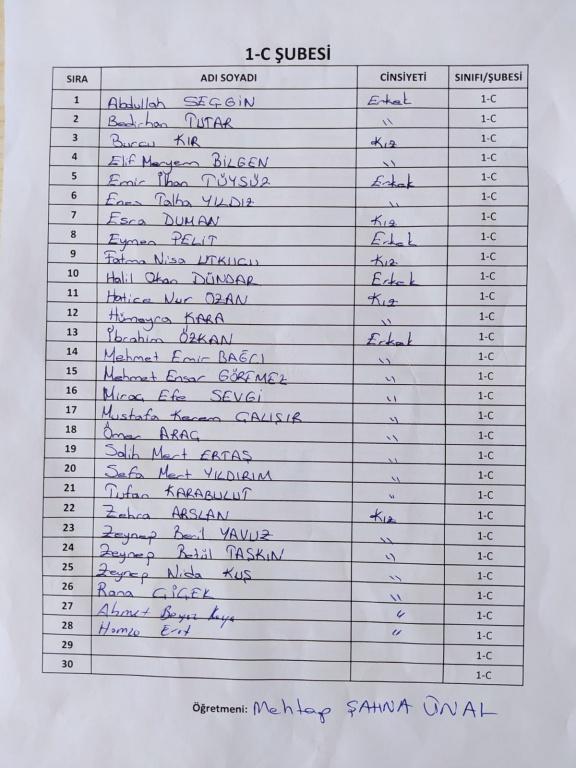 1-C ŞUBESİ
SIRA ADI SOYADI CİNSİYETİ SINIFI/ŞUBESİ
1 Abdullah SEÇGİN Erkek 1-C
2 Bedirhan TUTAR " 1-C
3 Burcu KIR Kız 1-C
4 Elif Meryem BİLGEN " 1-C
5 Emir İlhan TÜYSÜZ Erkek 1-C
6 Enes Talha YILDIZ " 1-C
7 Esra DUMAN Kız 1-C
8 Eymen PELİT Erkek 1-C
9 Fatma Nisa UTKUCU Kız 1-C
10 Halil Okan DÜNDAR Erkek 1-C
11 Hatice Nur OZAN Kız 1-C
12 Hümeyra KARA " 1-C
13 İbrahim ÖZKAN Erkek 1-C
14 Mehmet Emir BAĞCI " 1-C
15 Mehmet Ensar GÖRMEZ " 1-C
16 Miraç Efe SEVGİ " 1-C
17 Mustafa Kerem ÇALIŞIR " 1-C
18 Ömer ARAÇ " 1-C
19 Salih Mert ERTAŞ " 1-C
20 Sefa Mert YILDIRIM " 1-C
21 Tufan KARABULUT " 1-C
22 Zehra ARSLAN Kız 1-C
23 Zeynep Beril YAVUZ " 1-C
24 Zeynep Betül TAŞKIN " 1-C
25 Zeynep Nida KUŞ " 1-C
26 Rana ÇİÇEK " 1-C
27 Ahmet Kaya " 1-C
28 Hamza Erat " 1-C
29 1-C
30 1-C
Öğretmeni: Mehtap ŞAHNA ÜNAL